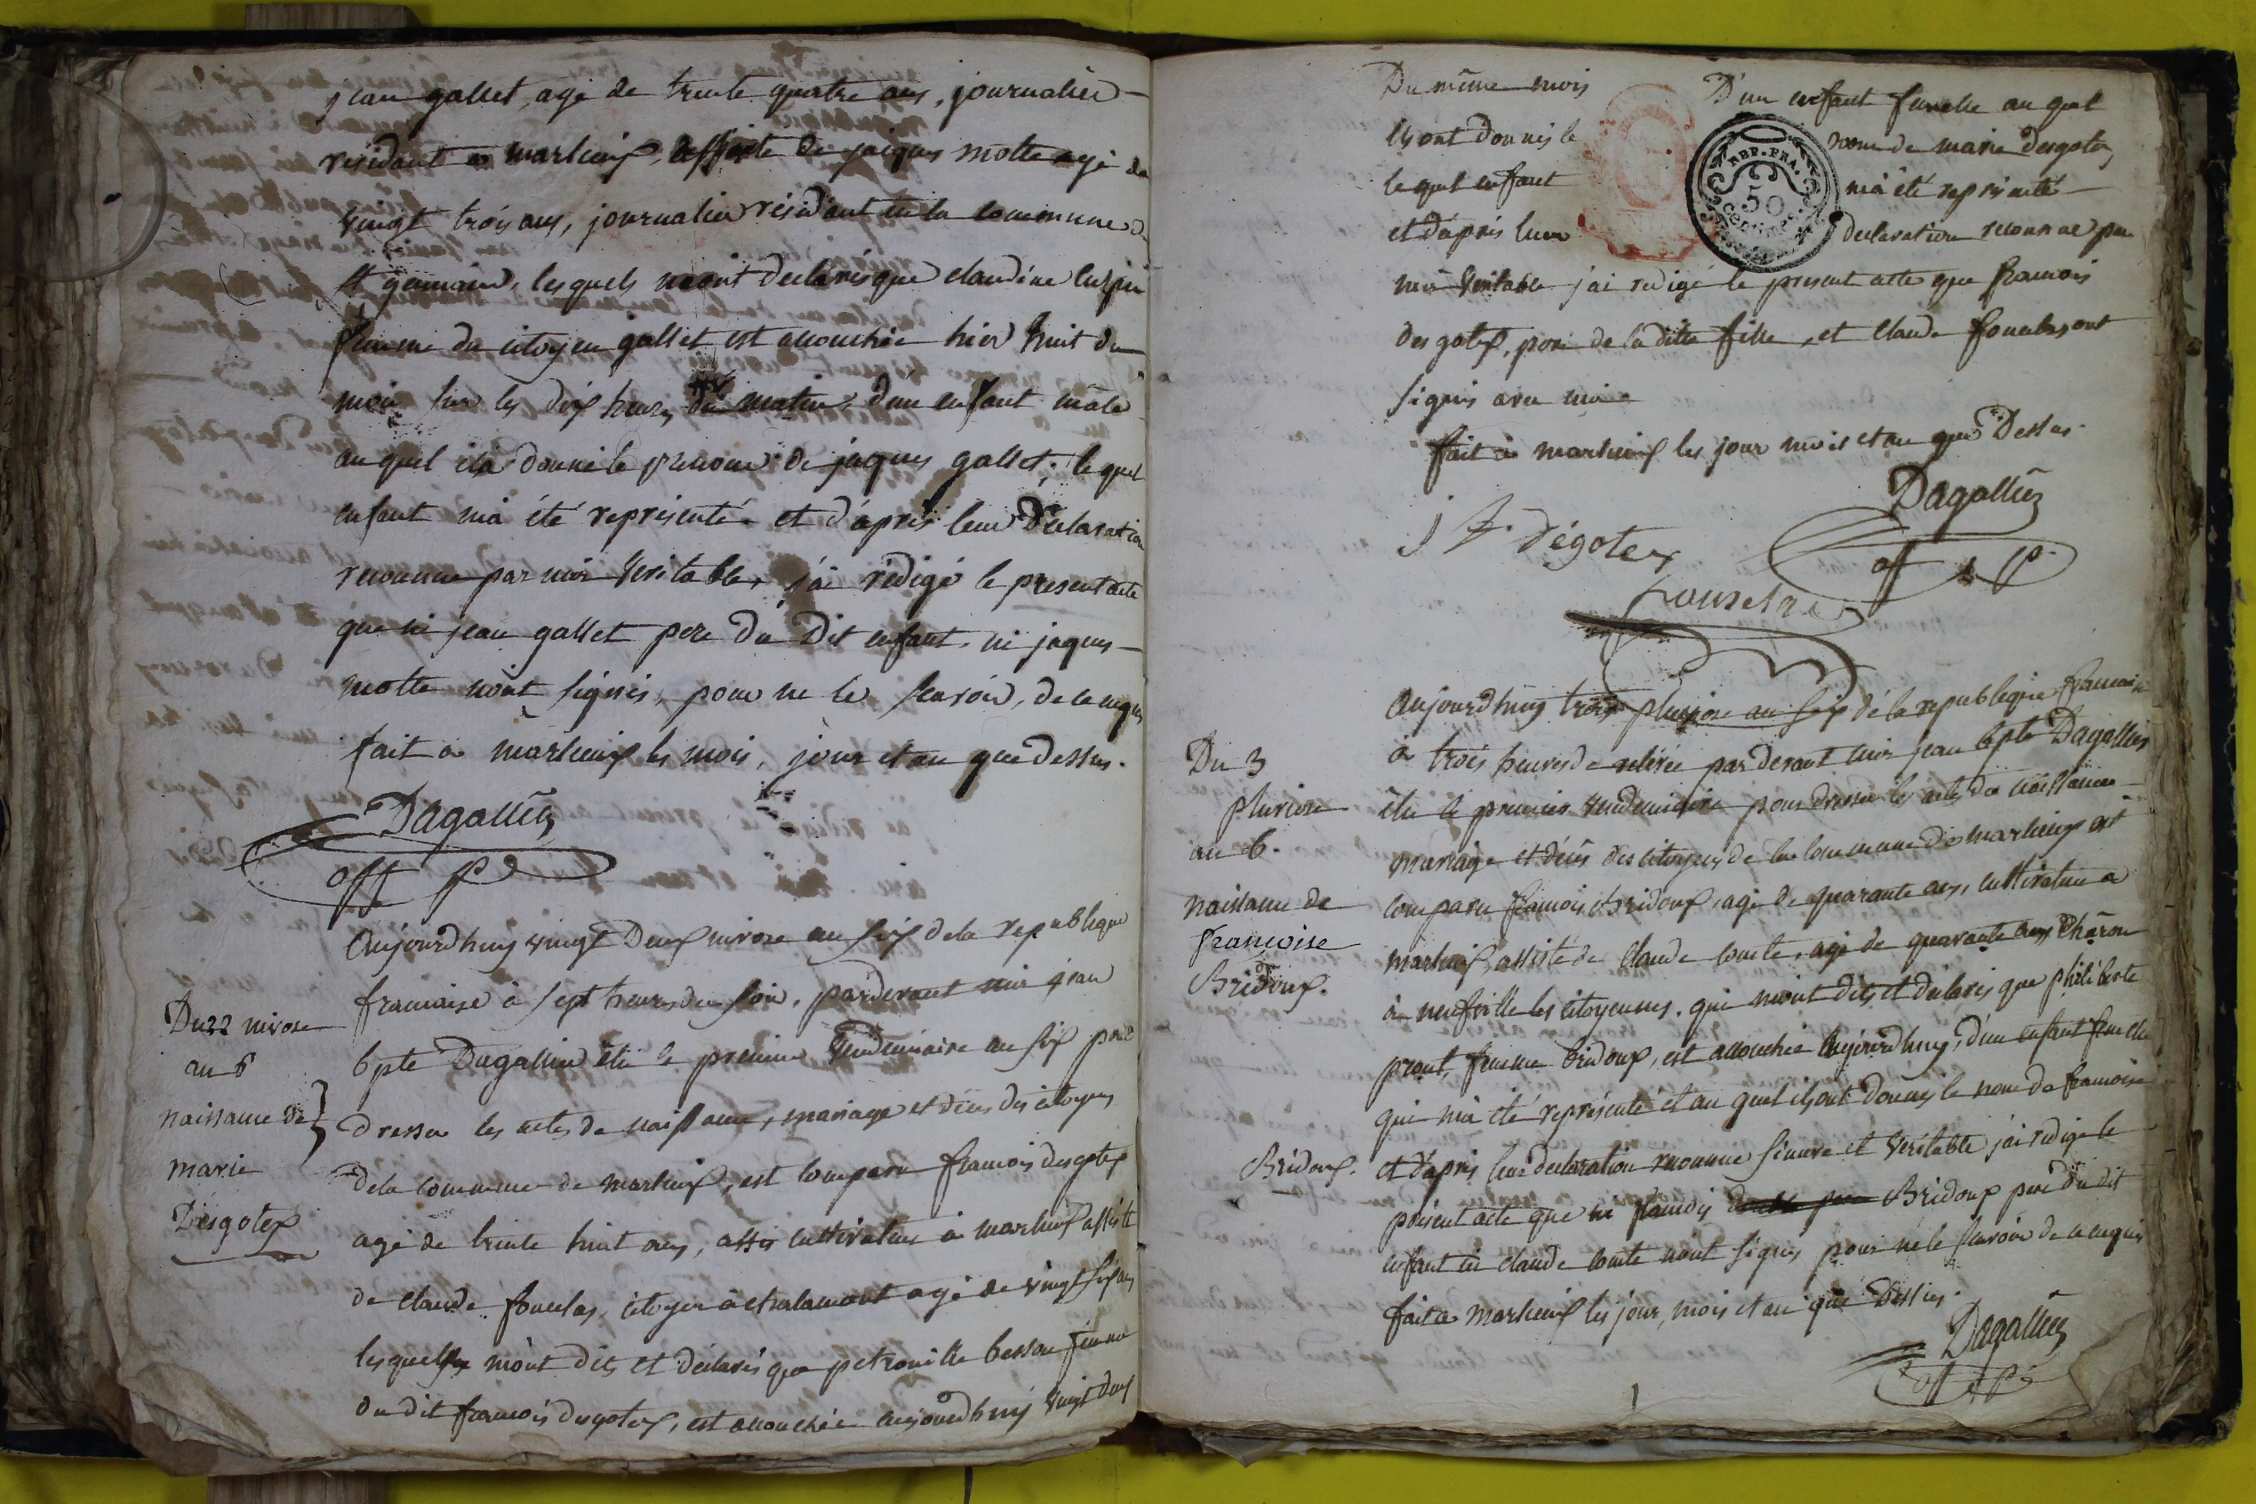 jean gallet, agé de trente quatre ans, journalier
residant a marlieux, assisté de jaiques motte agé de
vingt trois ans, journalier résidant en la commune de
st germain, lesquels mont declarés que claudine
femme du citoyen gallet est accouchée hier huit du
mois sur les dix heures du matin, d'un enfant mâle
au quel il a donné le prenom de jaques gallet, le quel
enfant m'a été représenté et d'après leur déclaration
reconnue par moi veritable, j'ai rédigé le present acte
que ni jean gallet pere du dit enfant, ni jaques
motte n'ont signés, pour ne le scavoir, de ce requis
fait a marlieux les mois, jour et an que dessus.
Dagallier
off p
Du 22 nivose
an 6
naissance de
marie
Désgotex
Aujourdhuy vingt deux nivose an six de la republique
francaise à sept heures du soir, pardevant moi jean
bpte Dagallier élu le premier Vendemiaire an six pour
dresser les actes de naissance, mariage et décès des citoyens
de la commune de marlieux, est comparu francois desgotex
agé de trente huit ans, cultivateur à marlieux assisté
de claude fouselas, citoyen à chalamont agé de vingt six ans
lesquels m'ont dits et déclarés que petronille besson femme
du dit francois desgotex, est accouchée aujourdhuy vingt deux
Du même mois D'un enfant femelle au quel
ils ont donnés le nom de marie desgotex
REP. FRA.
50
centimes
le quel enfant m'a été représenté
et d'après leur declaration reconnue par
moi veritable j'ai redigé le present acte que francois
desgotex, pere de la ditte fille, et claude fouselas ont
signés avec moi
fait à marlieux les jour mois et an que Dessus.
Dagallier
off p
j f. dégotex
Du 3
pluviose
an 6.
naissance de
francoise
Bridoux.
Aujourdhuy trois pluviose an six de la republique francaise
à trois heures de relevée pardevant moi jean bpte Dagallier
élu le premier vendemiaire pour dresser les actes de naissance
mariage et décès des citoyens de la commune de marlieux est
comparu francois Bridoux, agé de quarante ans, cultivateur a
marlieux, assisté de Claude comte, agé de quarante ans Charon
à neufville les citoyennes. qui m'ont dits et déclarés que philiberte
prout, femme bridoux, est accouchée aujourdhuy, d'un enfant femelle
qui m'a été représenté et au quel ils ont donnés le nom de francoise
Bridoux. et d'après leur declaration reconnue sincere et veritable j'ai redigé le
présent acte que ni francois Bridoux pere du dit
enfant ni claude comte n'ont signés pour ne le scavoir de ce requis
fait a marlieux les jour, mois et an que dessus.
Dagallier
off p